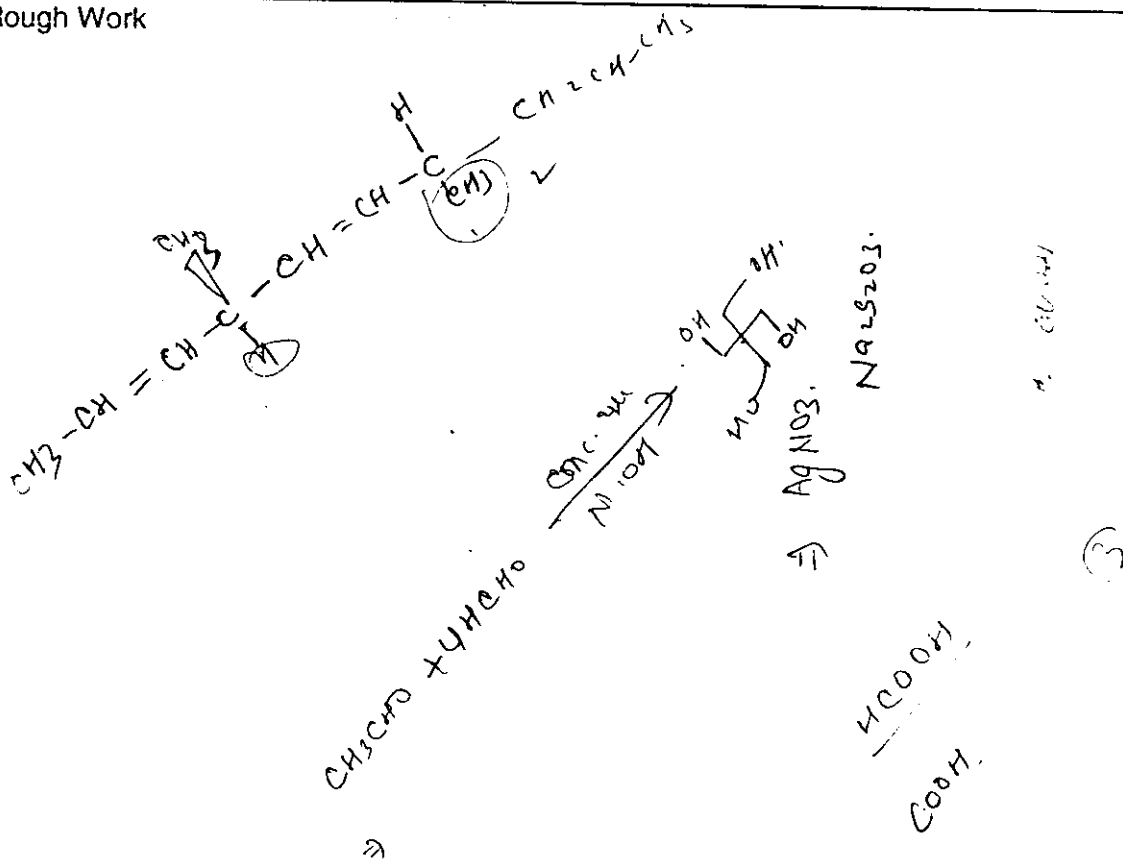 Rough Work
CH3-CH=CH-C-CH=CH-C-CH=CH-CH3
CH3
H
H
CH3
CH3CHO + 4HCHO
Conc.
OH
OH
OH
HO
AgNO3.
Na2S2O3.
HCOOH
COOH.
3